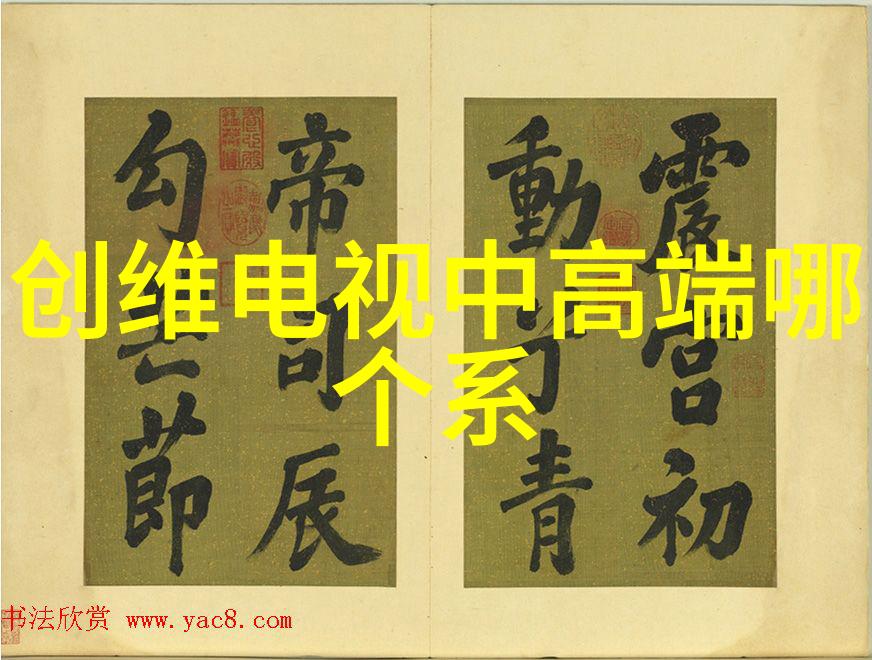 创维电视中高端哪
个系
震宫初
動 青
帝司辰
勾芒莭
书法欣赏 www.yac8.com